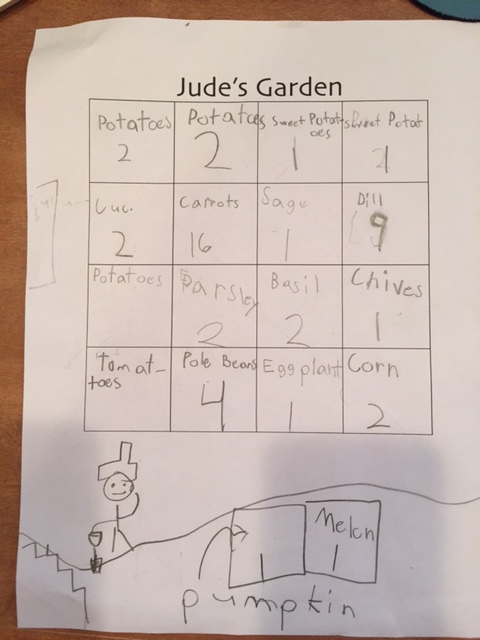 Jude's Garden
Potatoes
2
Potatoes
2
Sweet Potat-
oes
1
Sweet Potat
1
Cuc.
2
Carrots
16
Sage
1
Dill
9
Potatoes
Parsley
2
Basil
2
Chives
1
Tomat-
toes
Pole Beans
4
Eggplant
1
Corn
2
1
Melon
1
pumpkin